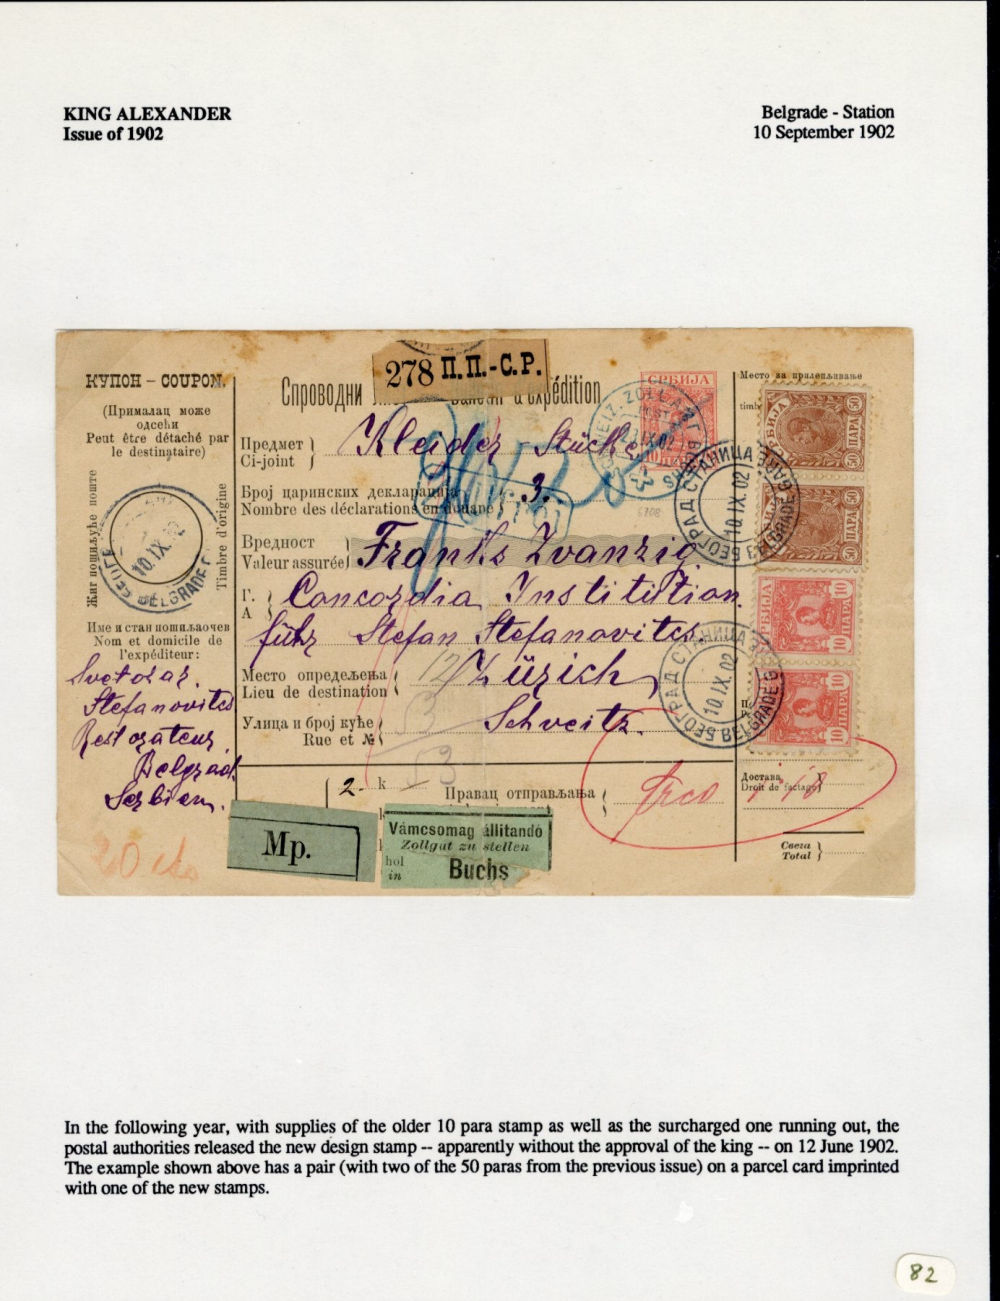 KING ALEXANDER
Issue of 1902
Belgrade - Station
10 September 1902
КУПОН – COUPON.
(Прималац може
одсећи
Peut être détaché par
le destinataire)
Жиг пошиљуће поште
Timbre d'origine
10.IX.02
BELGRADE
Име и стан пошиљаочев
Nom et domicile de
l'expéditeur:
Svetozar
Stefanovitcs
Restorateur
Belgrad
Serbien
278 П.П.-С.Р.
Спроводни
d'expédition
Предмет
Ci-joint
Kleider-Stücke
Број царинских декларација
Nombre des déclarations en douane
3.
Вредност
Valeur assurée
Franks Zvanzig
Г.
А
Concordia Institution
führ Stefan Stefanovitcs.
Место опредељења
Lieu de destination
Zürich
Улица и број куће
Rue et №
Schveitz.
2 k
Правац отправљања
frco
Mp.
Vámcsomag állitandó
Zollgut zu stellen
hol
in
Buchs
СРБИЈА
10 ПАРА
Место за прилепљивање
timb
СРБИЈА
50 ПАРА 50
50 ПАРА 50
СРБИЈА
10 ПАРА 10
10 ПАРА 10
БЕОГРАД СТАНИЦА
10.IX.02
BELGRADE
БЕОГРАД СТАНИЦА
10.IX.02
BELGRADE
Достава
Droit de factage
Свега
Total
In the following year, with supplies of the older 10 para stamp as well as the surcharged one running out, the
postal authorities released the new design stamp -- apparently without the approval of the king -- on 12 June 1902.
The example shown above has a pair (with two of the 50 paras from the previous issue) on a parcel card imprinted
with one of the new stamps.
82